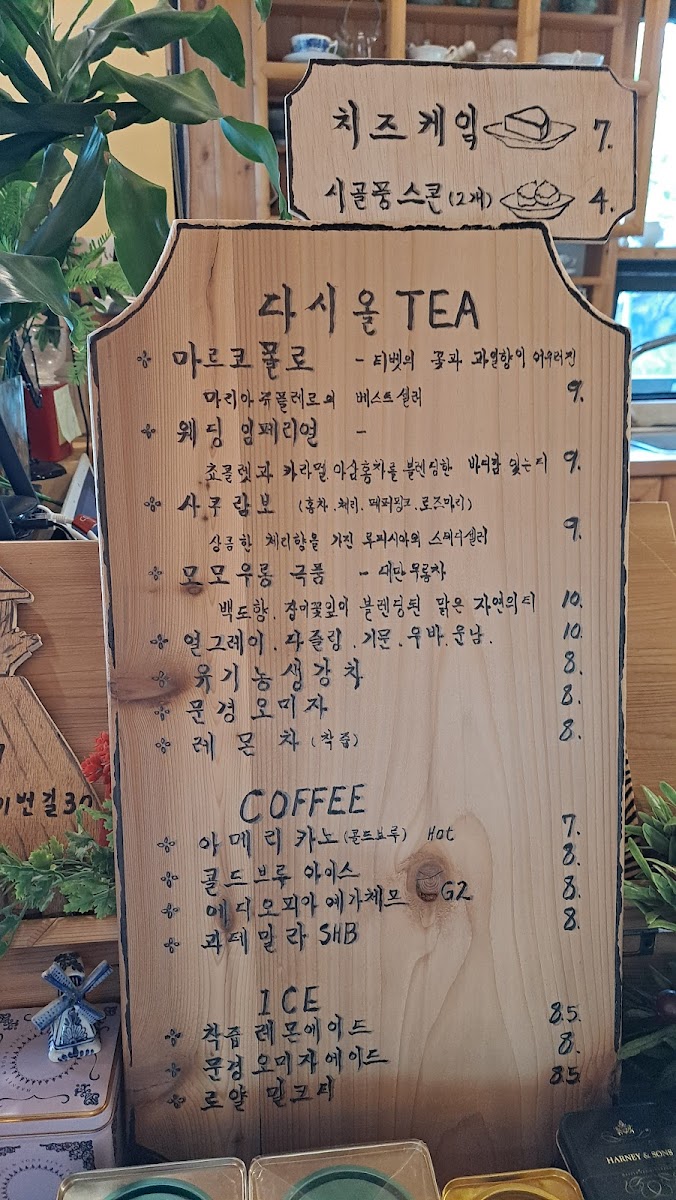 치즈케잌 7.
시골풍스콘(2개) 4.
다시올 TEA
마르코폴로 - 티벳의 꽃과 과일향이 어우러진
마리아쥬플레르의 베스트셀러 9.
웨딩 임페리얼 -
쵸콜렛과 카라멜 아삼홍차를 블렌딩한 바디감 있는티 9.
사쿠람보 (홍차.체리.페퍼핑크.로즈마리)
상큼한 체리향을 가진 루피시아의 스테디셀러 9.
모모우롱 극품 - 대만우롱차
백도향. 잡이꽃잎이 블렌딩된 맑은 자연의티 10.
얼그레이. 다즐링. 기문. 우바. 운남. 10.
유기농생강차 8.
문경오미자 8.
레몬차 (착즙) 8.
COFFEE
아메리카노(콜드브루) Hot 7.
콜드브루 아이스 8.
에디오피아예가체프 G2 8.
과테말라 SHB 8.
ICE
착즙레몬에이드 8.5.
문경오미자에이드 8.
로얄 밀크티 8.5
이번길 30
HARNEY & SONS